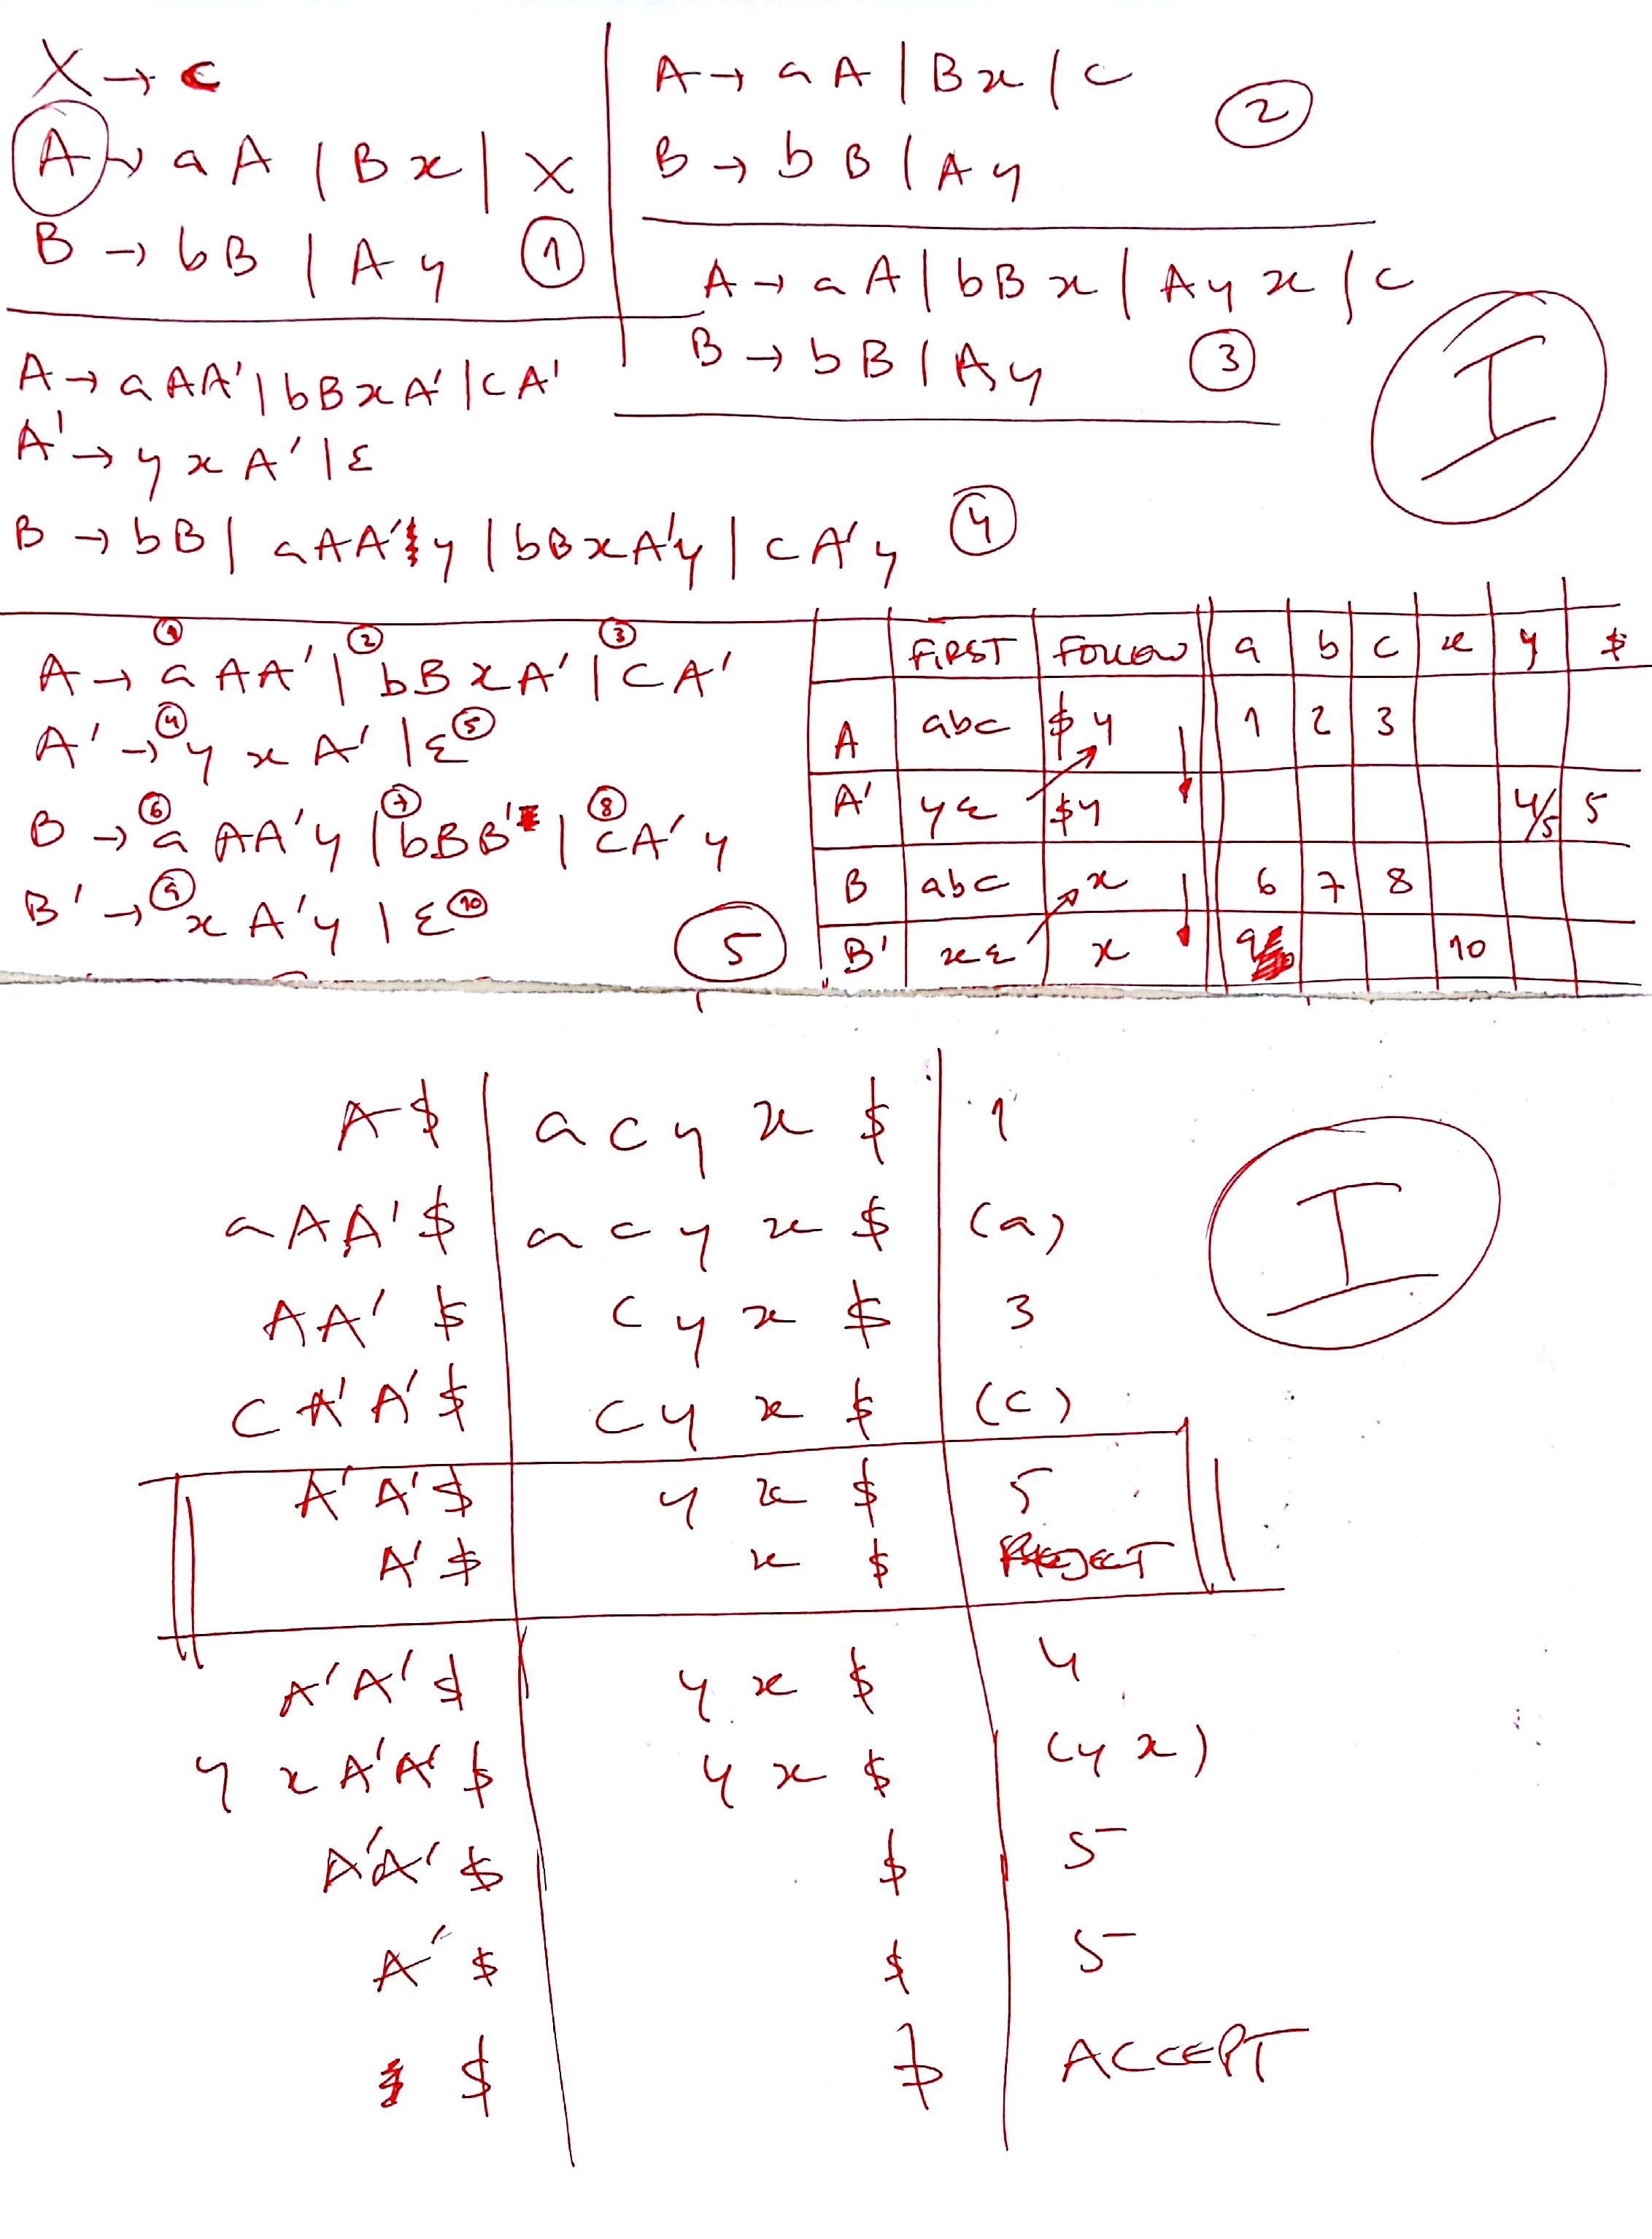 X → c
A → aA | Bx | X
B → bB | Ay ①
A → aA | Bx | c ②
B → bB | Ay
A → aA | bBx | Ayx | c
B → bB | Ay ③
I
A → aAA' | bBxA' | cA'
A' → yxA' | ε
B → bB | aAA'y | bBxA'y | cA'y ④
① ② ③
A → aAA' | bBxA' | cA'
A' → ④ yxA' | ε ⑤
B → ⑥ aAA'y | ⑦ bBB' | ⑧ cA'y
B' → ⑨ xA'y | ε ⑩
⑤
FIRST FOLLOW a b c x y $
A abc $ y 1 2 3
A' yε $y 4/5 5
B abc x 6 7 8
B' xε x 9 10
A$ acyx$ 1
aAA'$ acyx$ (a)
AA'$ cyx$ 3
cA'A'$ cyx$ (c)
I
A'A'$ yx$ 5
A'$ x$ REJECT
A'A'$ yx$ 4
yxA'A'$ yx$ (yx)
A'A'$ $ 5
A'$ $ 5
$ $ ACCEPT